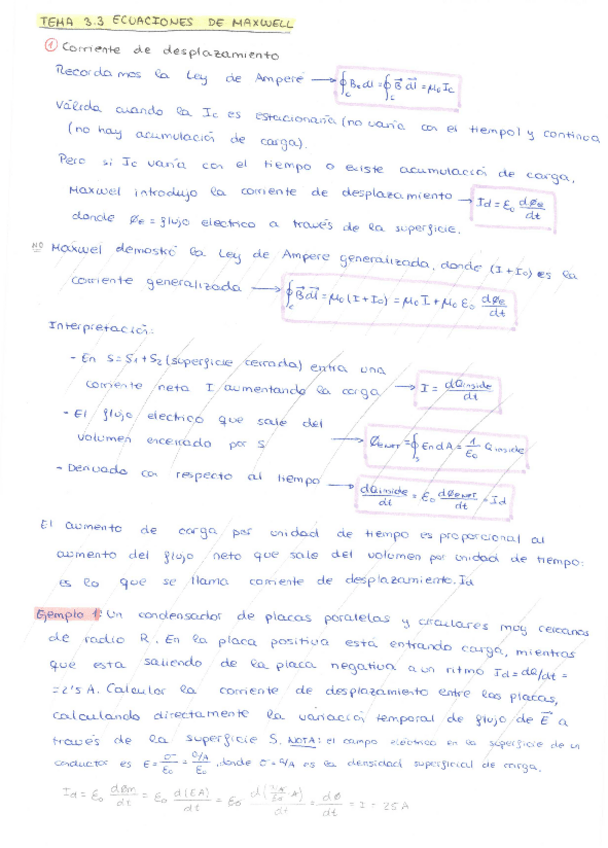 TEMA 3.3 ECUACIONES DE MAXWELL
① Corriente de desplazamiento
Recordamos la Ley de Ampere → ∮c Bₜ dl = ∮c B⃗ dl⃗ = μ₀ Ic
Válida cuando la Ic es estacionaria (no varía con el tiempo) y continua
(no hay acumulación de carga).
Pero si Ic varía con el tiempo o existe acumulación de carga,
Maxwel introdujo la corriente de desplazamiento → Id = ε₀ dØe/dt
donde Øe = flujo electrico a través de la superficie.
NO Maxwel demostró la Ley de Ampere generalizada, donde (I + I₀) es la
corriente generalizada → ∮c B⃗ dl⃗ = μ₀ (I + I₀) = μ₀ I + μ₀ ε₀ dØe/dt
Interpretación:
- En S = S₁ + S₂ (superficie cerrada) entra una
corriente neta I aumentando la carga → I = dQinside/dt
- El flujo electrico que sale del
volumen encerrado por S → Øenet = ∮s En dA = 1/ε₀ Qinside
- Derivada con respecto al tiempo → dQinside/dt = ε₀ dØenet/dt = Id
El aumento de carga por unidad de tiempo es proporcional al
aumento del flujo neto que sale del volumen por unidad de tiempo:
es lo que se llama corriente de desplazamiento. Id
Ejemplo 1: Un condensador de placas paralelas y circulares muy cercanas
de radio R. En la placa positiva está entrando carga, mientras
que esta saliendo de la placa negativa a un ritmo Id = dQ/dt =
= 2'5 A. Calcular la corriente de desplazamiento entre las placas,
calculando directamente la variación temporal de flujo de E⃗ a
través de la superficie S. NOTA: el campo eléctrico en la superficie de un
conductor es E = σ/ε₀ = Q/A/ε₀, donde σ = Q/A es la densidad superficial de carga.
Id = ε₀ dØm/dt = ε₀ d(EA)/dt = ε₀ = dQ/dt = I = 25 A